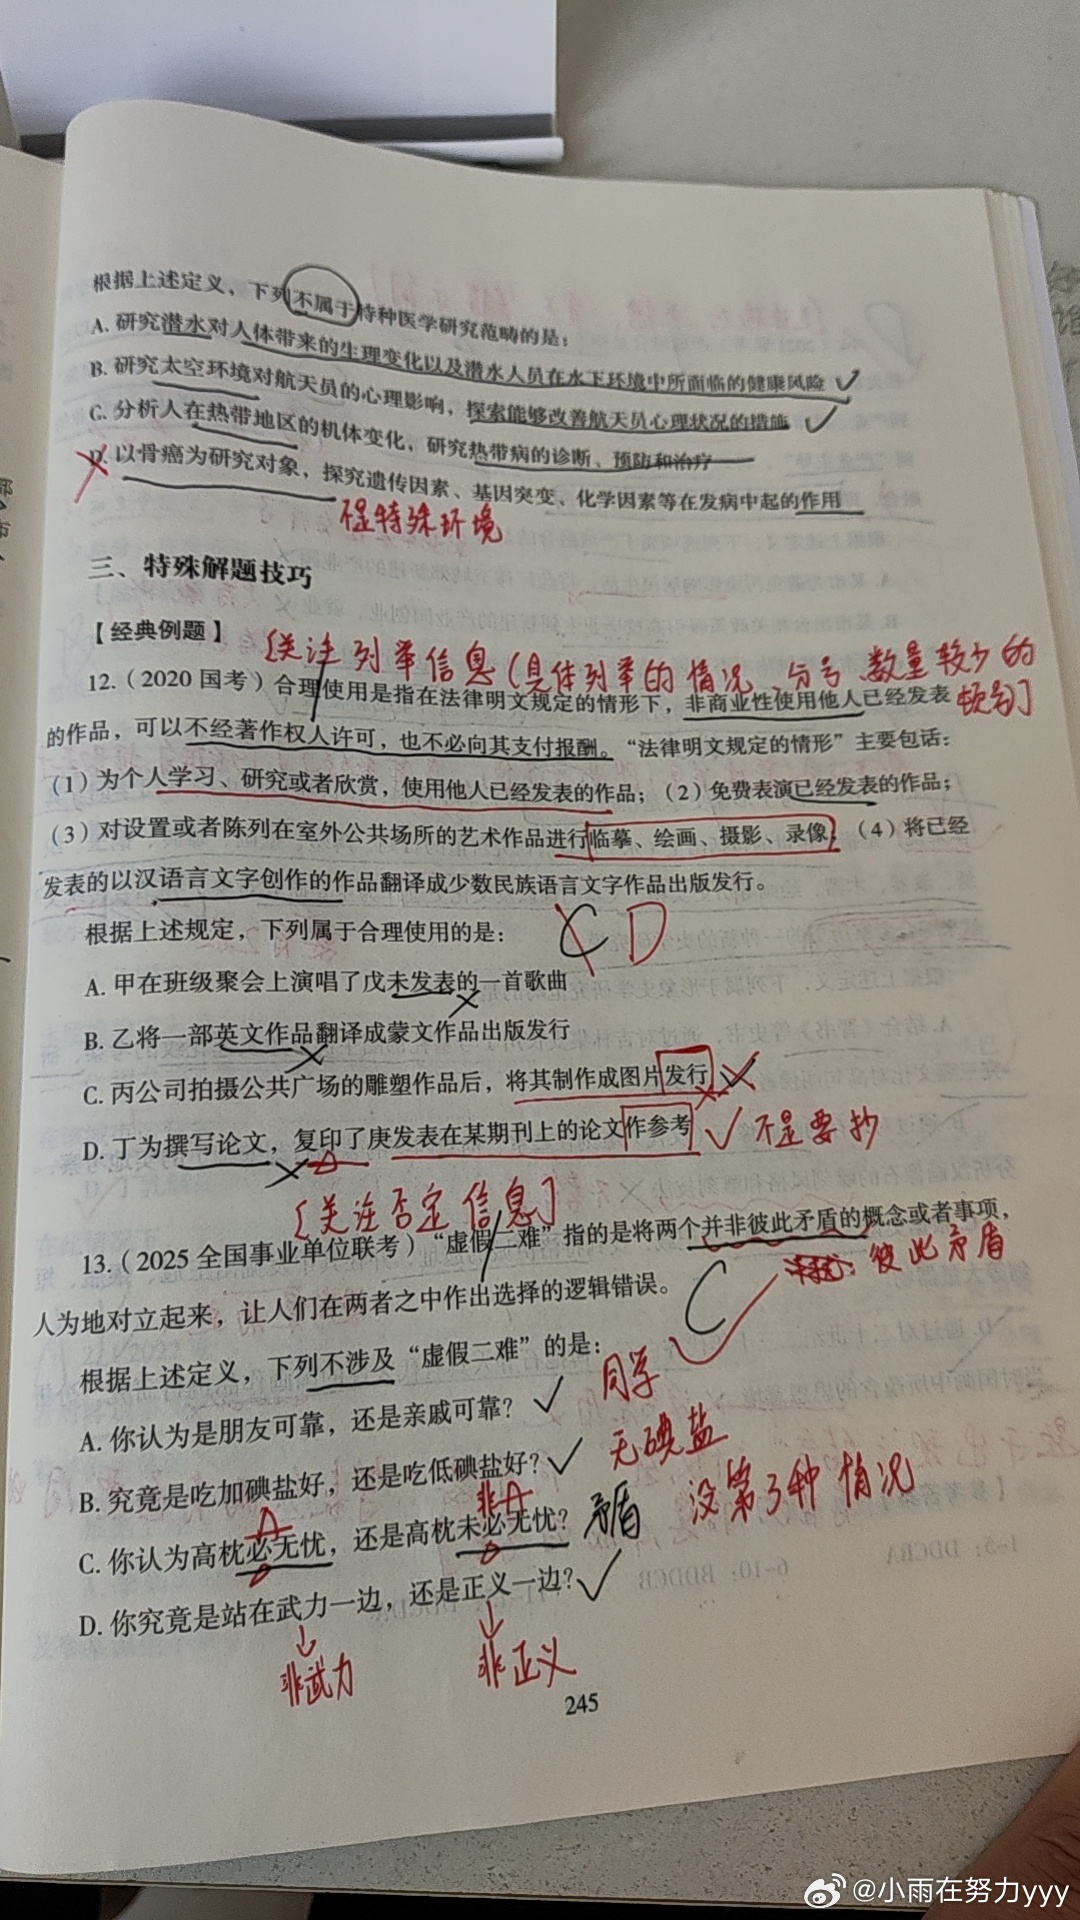 根据上述定义，下列不属于特种医学研究范畴的是：
A. 研究潜水对人体带来的生理变化以及潜水人员在水下环境中所面临的健康风险
B. 研究太空环境对航天员的心理影响，探索能够改善航天员心理状况的措施
C. 分析人在热带地区的机体变化，研究热带病的诊断、预防和治疗
D. 以骨癌为研究对象，探究遗传因素、基因突变、化学因素等在发病中起的作用
不是特殊环境
三、特殊解题技巧
【经典例题】
[关注列举信息(具体列举的情况、分号、数量较少的
顿号]
12.（2020 国考）合理使用是指在法律明文规定的情形下，非商业性使用他人已经发表
的作品，可以不经著作权人许可，也不必向其支付报酬。“法律明文规定的情形”主要包话：
（1）为个人学习、研究或者欣赏，使用他人已经发表的作品；（2）免费表演已经发表的作品；
（3）对设置或者陈列在室外公共场所的艺术作品进行临摹、绘画、摄影、录像；（4）将已经
发表的以汉语言文字创作的作品翻译成少数民族语言文字作品出版发行。
根据上述规定，下列属于合理使用的是： C D
A. 甲在班级聚会上演唱了戊未发表的一首歌曲
B. 乙将一部英文作品翻译成蒙文作品出版发行
C. 丙公司拍摄公共广场的雕塑作品后，将其制作成图片发行
D. 丁为撰写论文，复印了庚发表在某期刊上的论文作参考 不是要抄
[关注否定信息]
13.（2025 全国事业单位联考）“虚假二难”指的是将两个并非彼此矛盾的概念或者事项，
彼此矛盾
人为地对立起来，让人们在两者之中作出选择的逻辑错误。 C
根据上述定义，下列不涉及“虚假二难”的是：
A. 你认为是朋友可靠，还是亲戚可靠？ 同学
B. 究竟是吃加碘盐好，还是吃低碘盐好？ 无碘盐
A 非A
C. 你认为高枕必无忧，还是高枕未必无忧？ 矛盾 没第3种情况
D. 你究竟是站在武力一边，还是正义一边？
非武力 非正义
245
@小雨在努力yyy